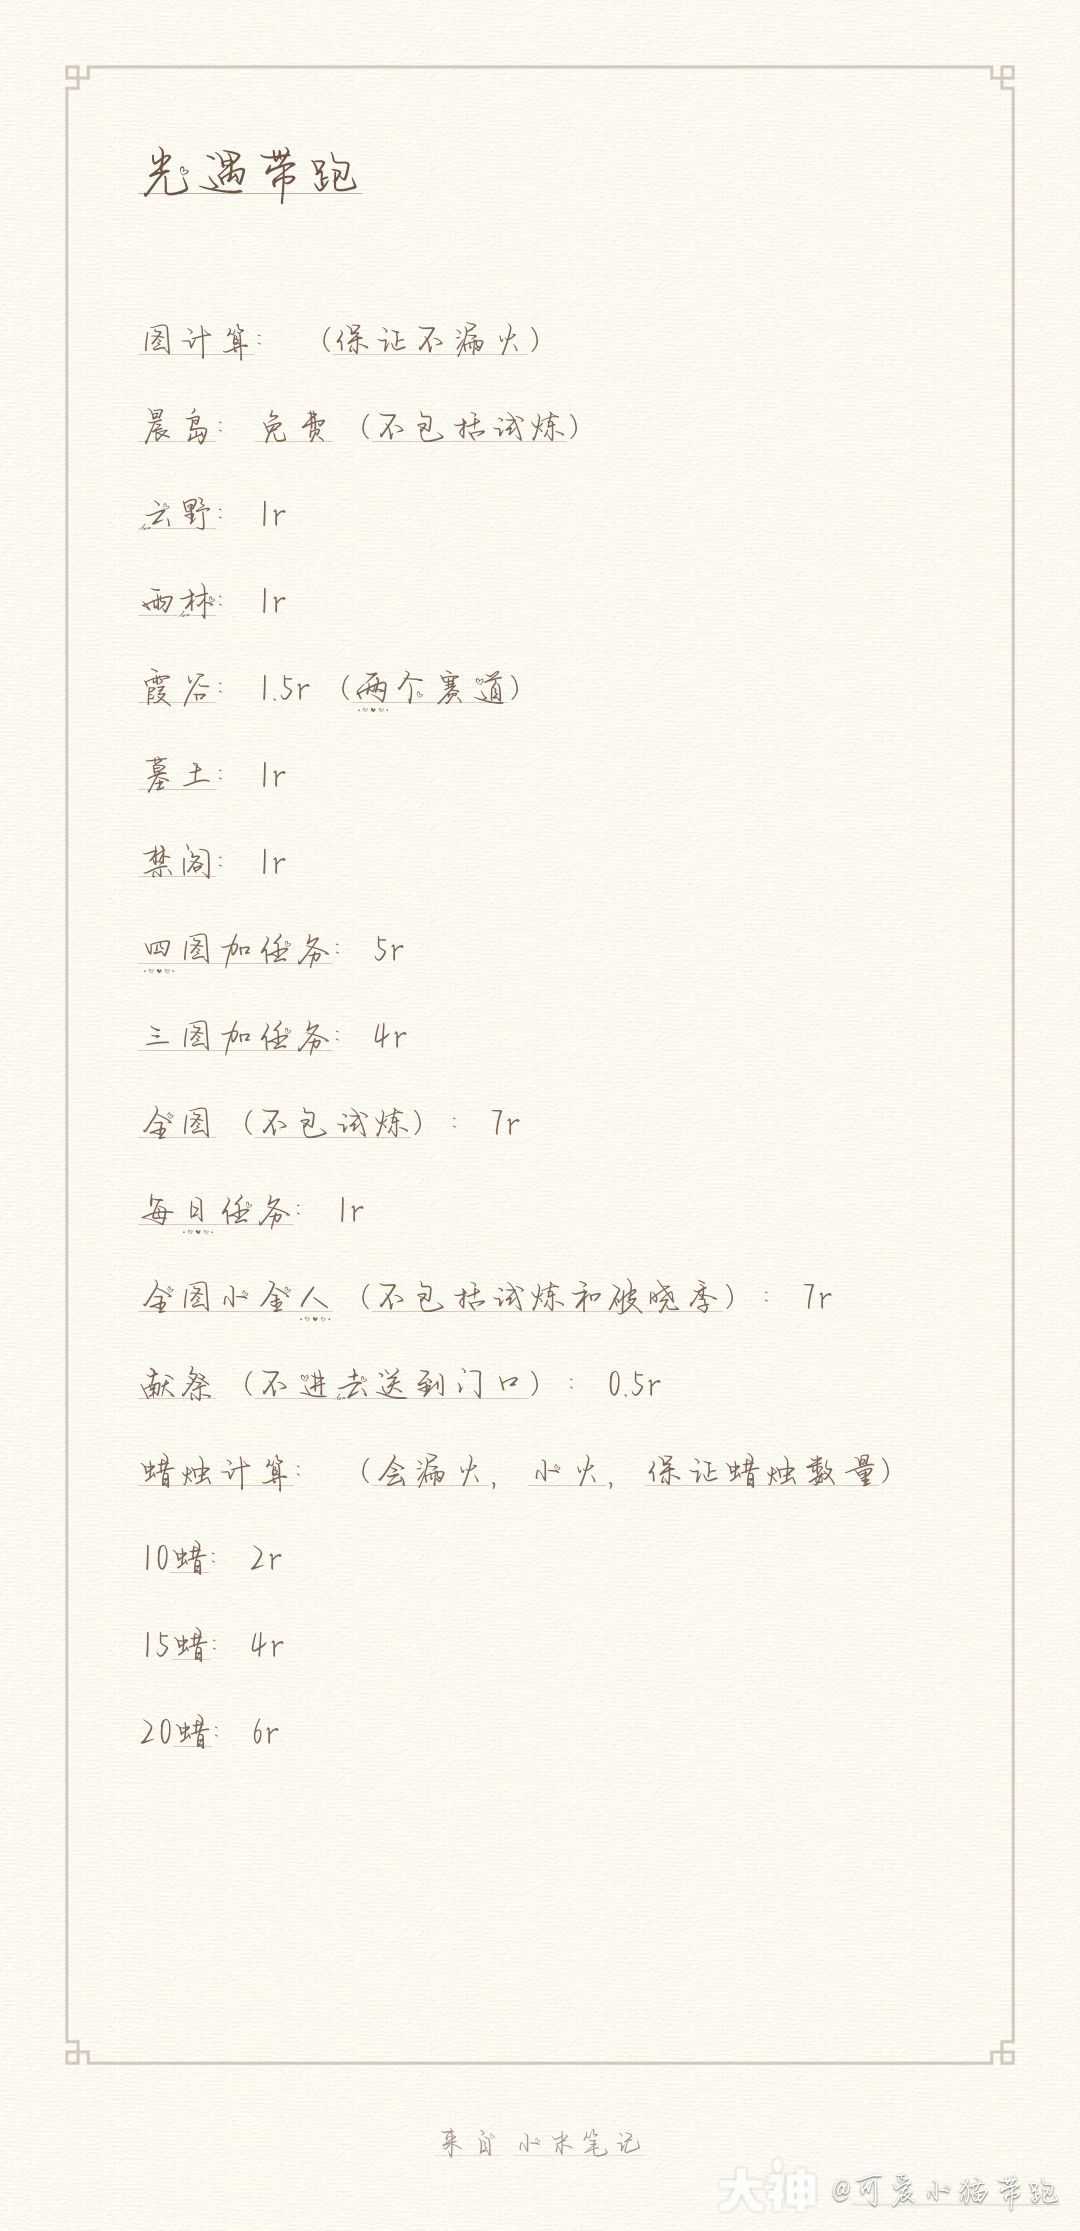 光遇带跑
图计算：（保证不漏火）
晨岛：免费（不包括试炼）
云野：1r
雨林：1r
霞谷：1.5r（两个赛道）
墓土：1r
禁阁：1r
四图加任务：5r
三图加任务：4r
全图（不包试炼）：7r
每日任务：1r
全图小金人（不包括试炼和破晓季）：7r
献祭（不进去送到门口）：0.5r
蜡烛计算：（会漏火，小火，保证蜡烛数量）
10蜡：2r
15蜡：4r
20蜡：6r
来自 小米笔记
大神 @可爱小猫带跑